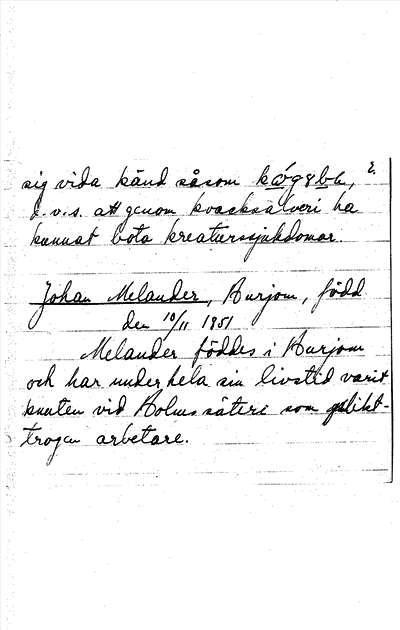 sig vida känd såsom
d.v.s. att genom kvacksalveri ha
kunnat bota kreaturssjukdomar.
Johan Melander, Kurjom, född
den 10/11 1851
Melander föddes i Kurjom
och har under hela sin livstid varit
knuten vid Holms säteri som plikt-
trogen arbetare.